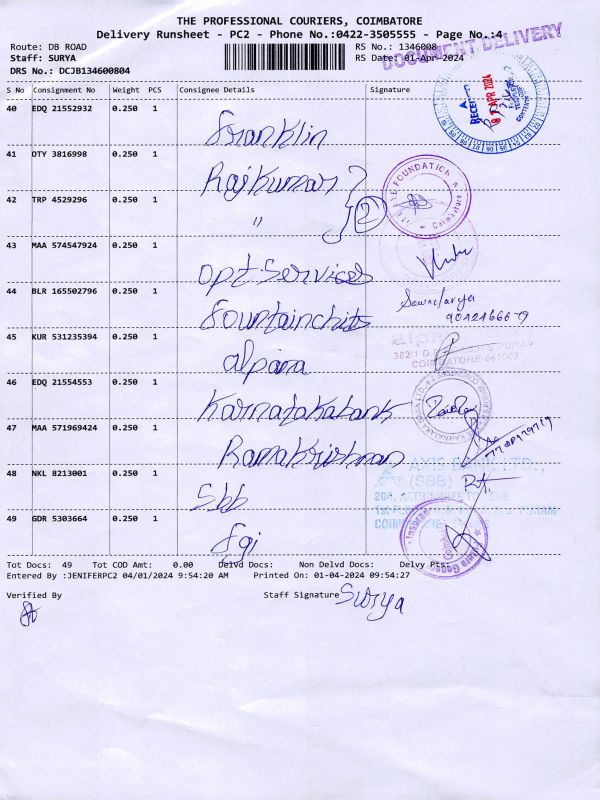 THE PROFESSIONAL COURIERS, COIMBATORE
Delivery Runsheet - PC2 - Phone No.:0422-3505555 - Page No.:4
DOCUMENT DELIVERY
Route: DB ROAD RS No.: 1346008
Staff: SURYA RS Date: 01-Apr-2024
DRS No.: DCJB134600804
S No Consignment No Weight PCS Consignee Details Signature
40 EDQ 21552932 0.250 1 Franklin
41 OTY 3816998 0.250 1 Rajkumar
42 TRP 4529296 0.250 1 " 2
43 MAA 574547924 0.250 1 Opt.Services
44 BLR 165502796 0.250 1 Fountainchits
45 KUR 531235394 0.250 1 alpaa
46 EDQ 21554553 0.250 1 Karnatakabank
47 MAA 571969424 0.250 1 RamaKrishnan
48 NKL 8213001 0.250 1 Sbb
49 GDR 5303664 0.250 1 fgi
FOUNDATION
Coimbatore
COIMBATORE-641002
AXIS BANK LTD.,
(SBB)
Tot Docs: 49 Tot COD Amt: 0.00 Delvd Docs: Non Delvd Docs: Delvy Pts:
Entered By :JENIFERPC2 04/01/2024 9:54:20 AM Printed On: 01-04-2024 09:54:27
Verified By Staff Signature Surya